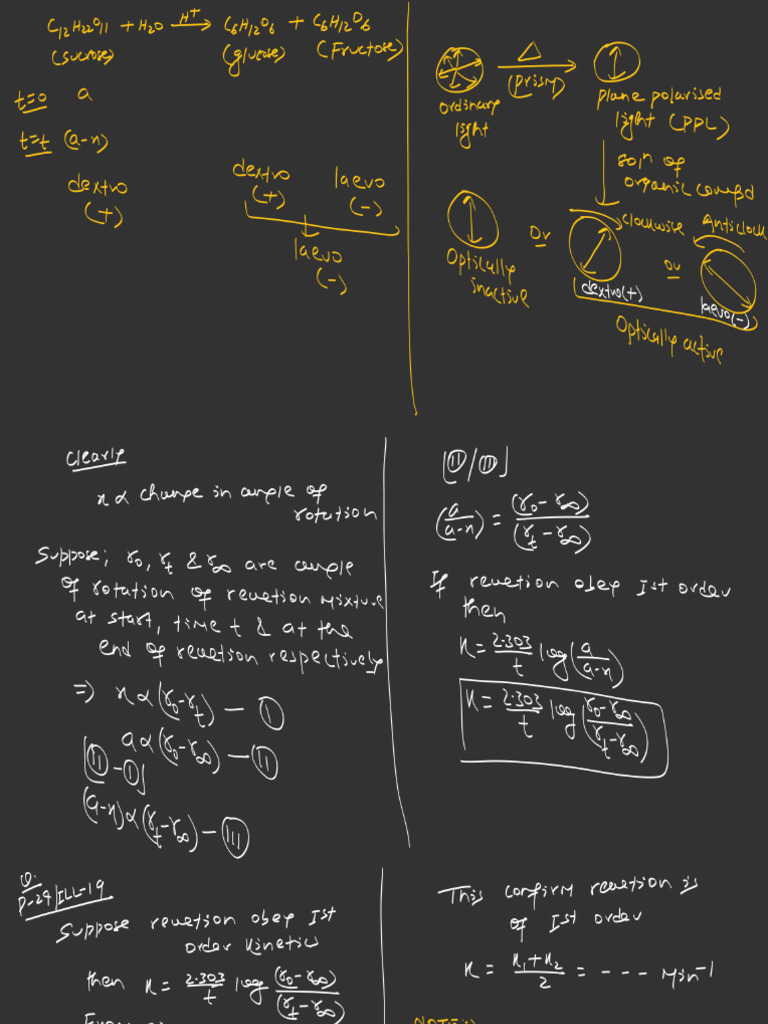 C12H22O11 + H2O H+→ C6H12O6 + C6H12O6
(sucrose) (glucose) (Fructose)
t=0 a
t=t (a-x)
dextro dextro laevo
(+) (+) (-)
laevo
(-)
Δ
(Prism)
ordinary
light
plane polarised
light (PPL)
soln of
organic compd
clockwise Anticlock
or or
Optically
inactive
dextro(+) laevo(-)
Optically active
Clearly
x α change in angle of
rotation
Suppose; r0, rt & r∞ are angle
of rotation of reaction mixture
at start, time t & at the
end of reaction respectively
⇒ x α (r0-rt) — I
a α (r0-r∞) — II
[II - I]
(a-x) α (rt-r∞) — III
[II/III]
(a/(a-x)) = (r0-r∞)/(rt-r∞)
If reaction obey Ist order
then
K = 2.303/t log(a/(a-x))
K = 2.303/t log((r0-r∞)/(rt-r∞))
Q.
P-24/ILL-19
Suppose reaction obey Ist
order Kinetics
then K = 2.303/t log (r0-r∞)/(rt-r∞)
This confirm reaction is
of Ist order
K = (K1+K2)/2 = --- Min-1